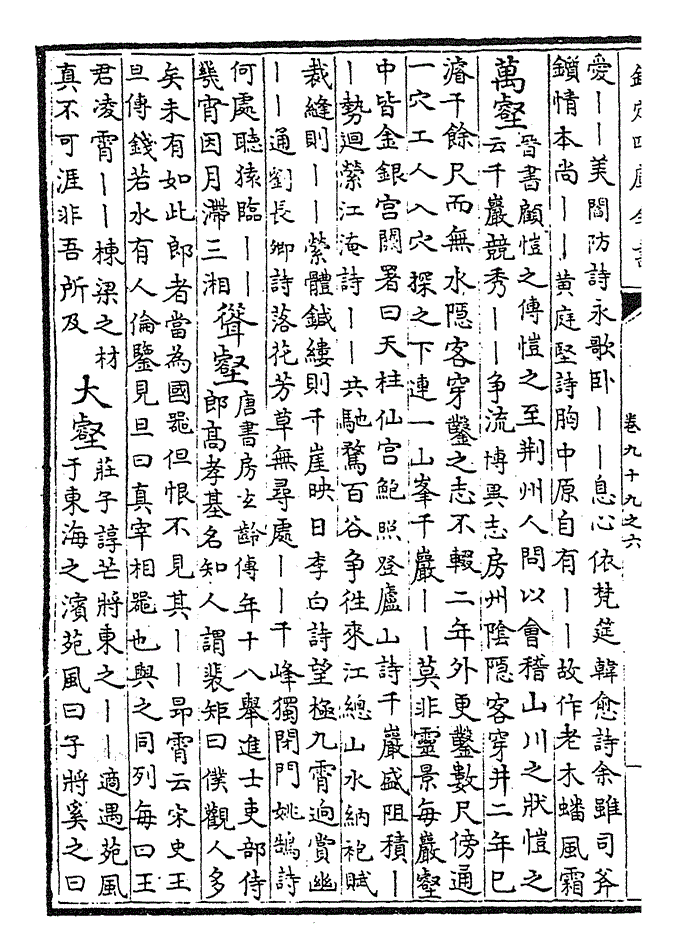 欽定四庫全書
卷九十九之六
一
愛丨丨美閻防詩永歌卧丨丨息心依梵筵韓愈詩余雖司斧
鎖情本尚丨丨黄庭堅詩胸中原自有丨丨故作老木蟠風霜
萬壑
晉書顧愷之傳愷之至荆州人問以會稽山川之狀愷之
云千巖競秀丨丨争流博異志房州陰隠客穿井二年已
濬千餘尺而無水隠客穿鑿之志不輟二年外更鑿數尺傍通
一穴工人入穴探之下連一山峯千巖丨丨莫非靈景每巖壑
中皆金銀宫闕署曰天柱仙宫鮑照登廬山詩千巖盛阻積丨
丨勢迴縈江淹詩丨丨共馳騖百谷争徃來江總山水納袍賦
裁縫則丨丨縈體鍼縷則千崖映日李白詩望極九霄逈賞幽
丨丨通劉長卿詩落花芳草無尋處丨丨千峰獨閉門姚鵠詩
何處聴猿臨丨丨
幾宵因月滯三湘
聳壑
唐書房玄齡傳年十八舉進士吏部侍
郎髙孝基名知人謂裴矩曰僕觀人多
矣未有如此郎者當為國噐但恨不見其丨丨昻霄云宋史王
旦傳錢若水有人倫鑒見旦曰真宰相噐也與之同列每曰王
君凌霄丨丨棟梁之材
真不可涯非吾所及
大壑
莊子諄芒將東之丨丨適遇苑風
于東海之濱苑風曰子將奚之曰